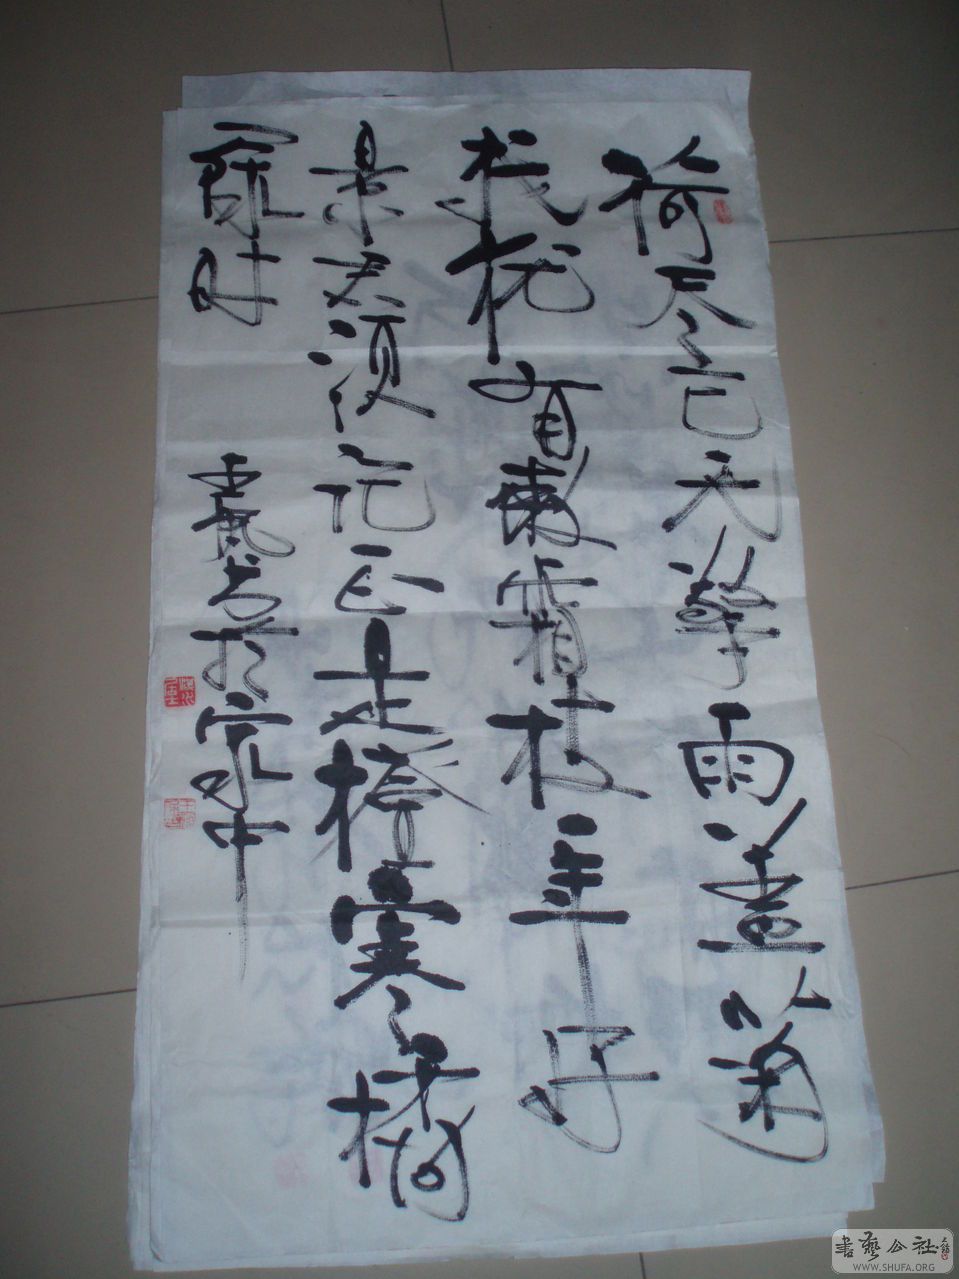 荷尽已无擎雨盖菊
残犹有傲霜枝一年好
景君须记正是橙黄橘
绿时
书于家中
書藝公社
WWW.SHUFA.ORG